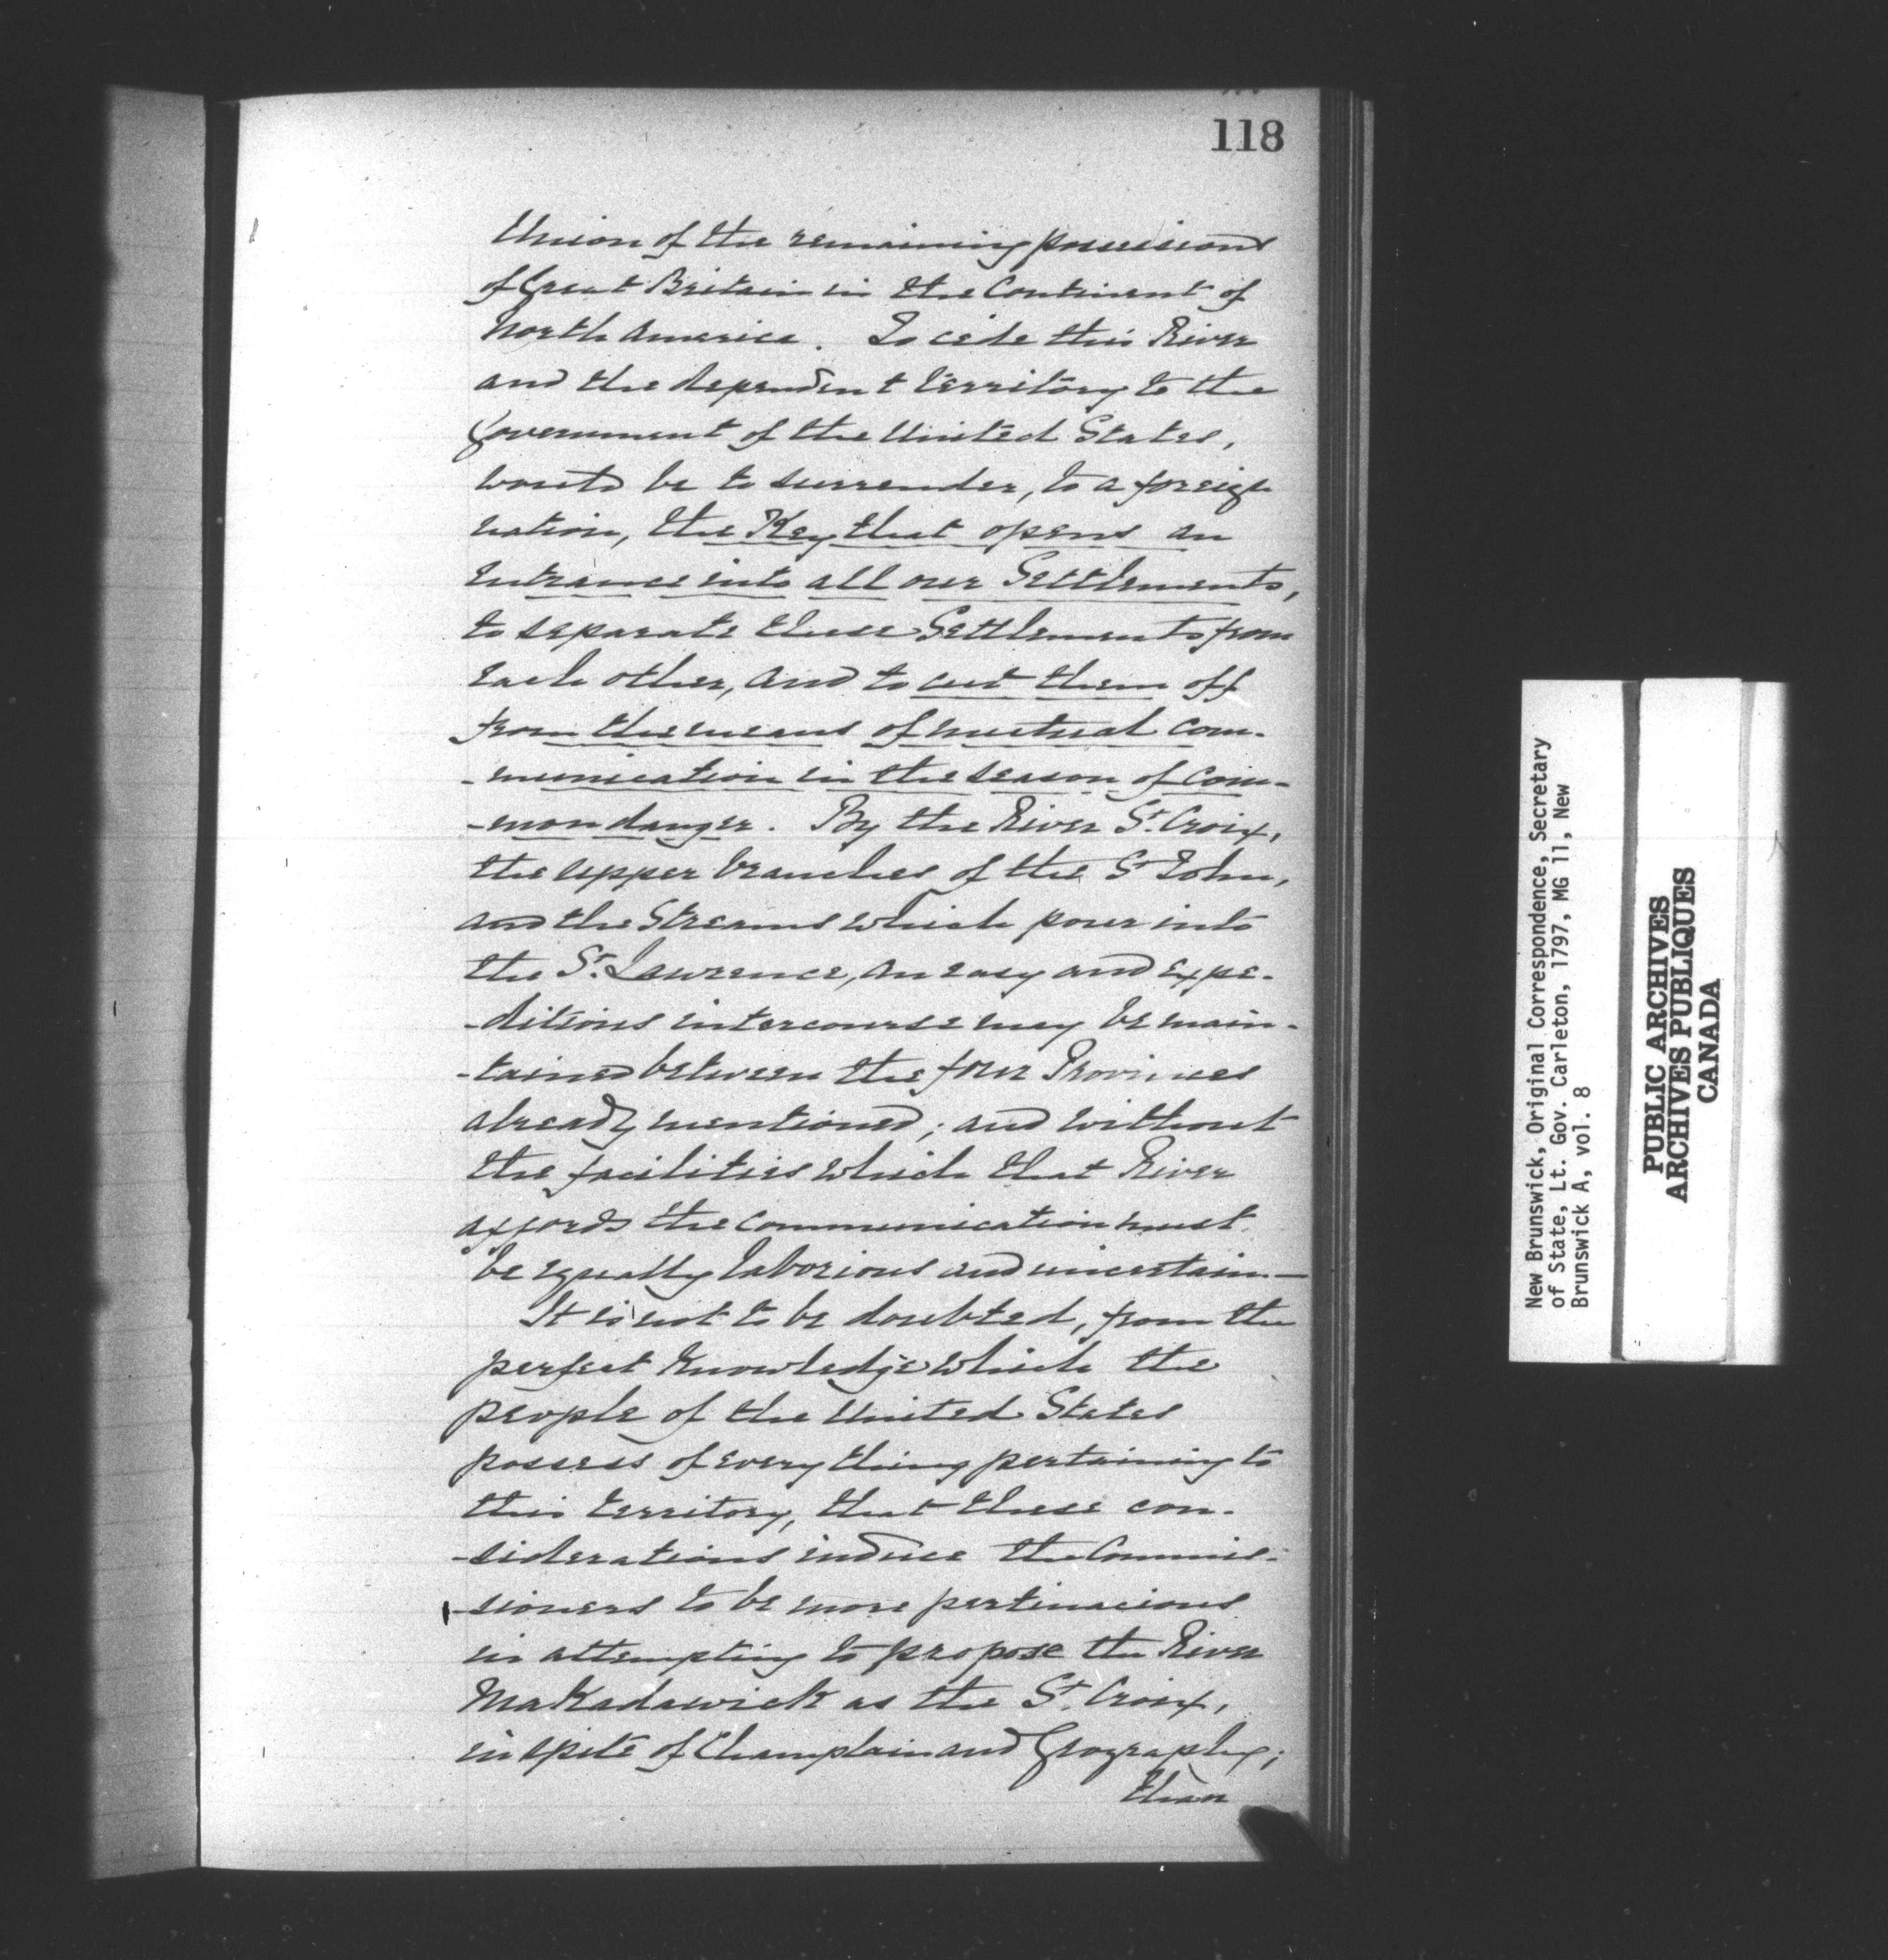 118
Union of the remaining possessions
of Great Britain in the Continent of
North America. To cede this River
and the dependent territory to the
Government of the United States,
would be to surrender, to a foreign
nation, the Key that opens an
entrance into all our Settlements,
to separate these Settlements from
each other, and to cut them off
from the means of mutual com-
-munication in the season of com-
-mon danger. By the River St. Croix,
the upper branches of the St John,
and the Streams which pour into
the St. Lawrence, an easy and expe-
-ditious intercourse may be main-
-tained between the four Provinces
already mentioned; and without
the facilities which that River
affords the communication must
be equally laborious and uncertain—
It is not to be doubted, from the
perfect knowledge which the
people of the United States
possess of every thing pertaining to
this territory, that these con-
-siderations induce the Commis-
-sioners to be more pertinacious
in attempting to propose the River
Makadawick as the St. Croix,
in spite of Champlain and Geography;
than
New Brunswick, Original Correspondence, Secretary
of State, Lt. Gov. Carleton, 1797, MG 11, New
Brunswick A, vol. 8
PUBLIC ARCHIVES
ARCHIVES PUBLIQUES
CANADA